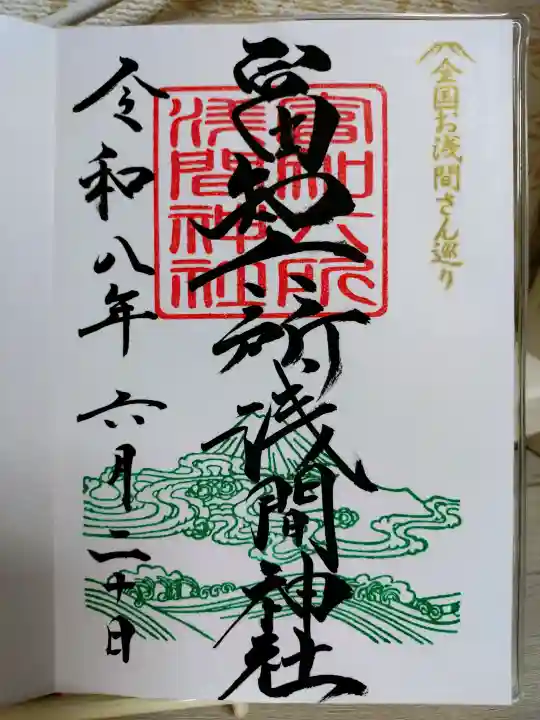 全国お浅間さん巡り
富知六所浅間神社
富知六所
浅間神社
令和八年六月二十日